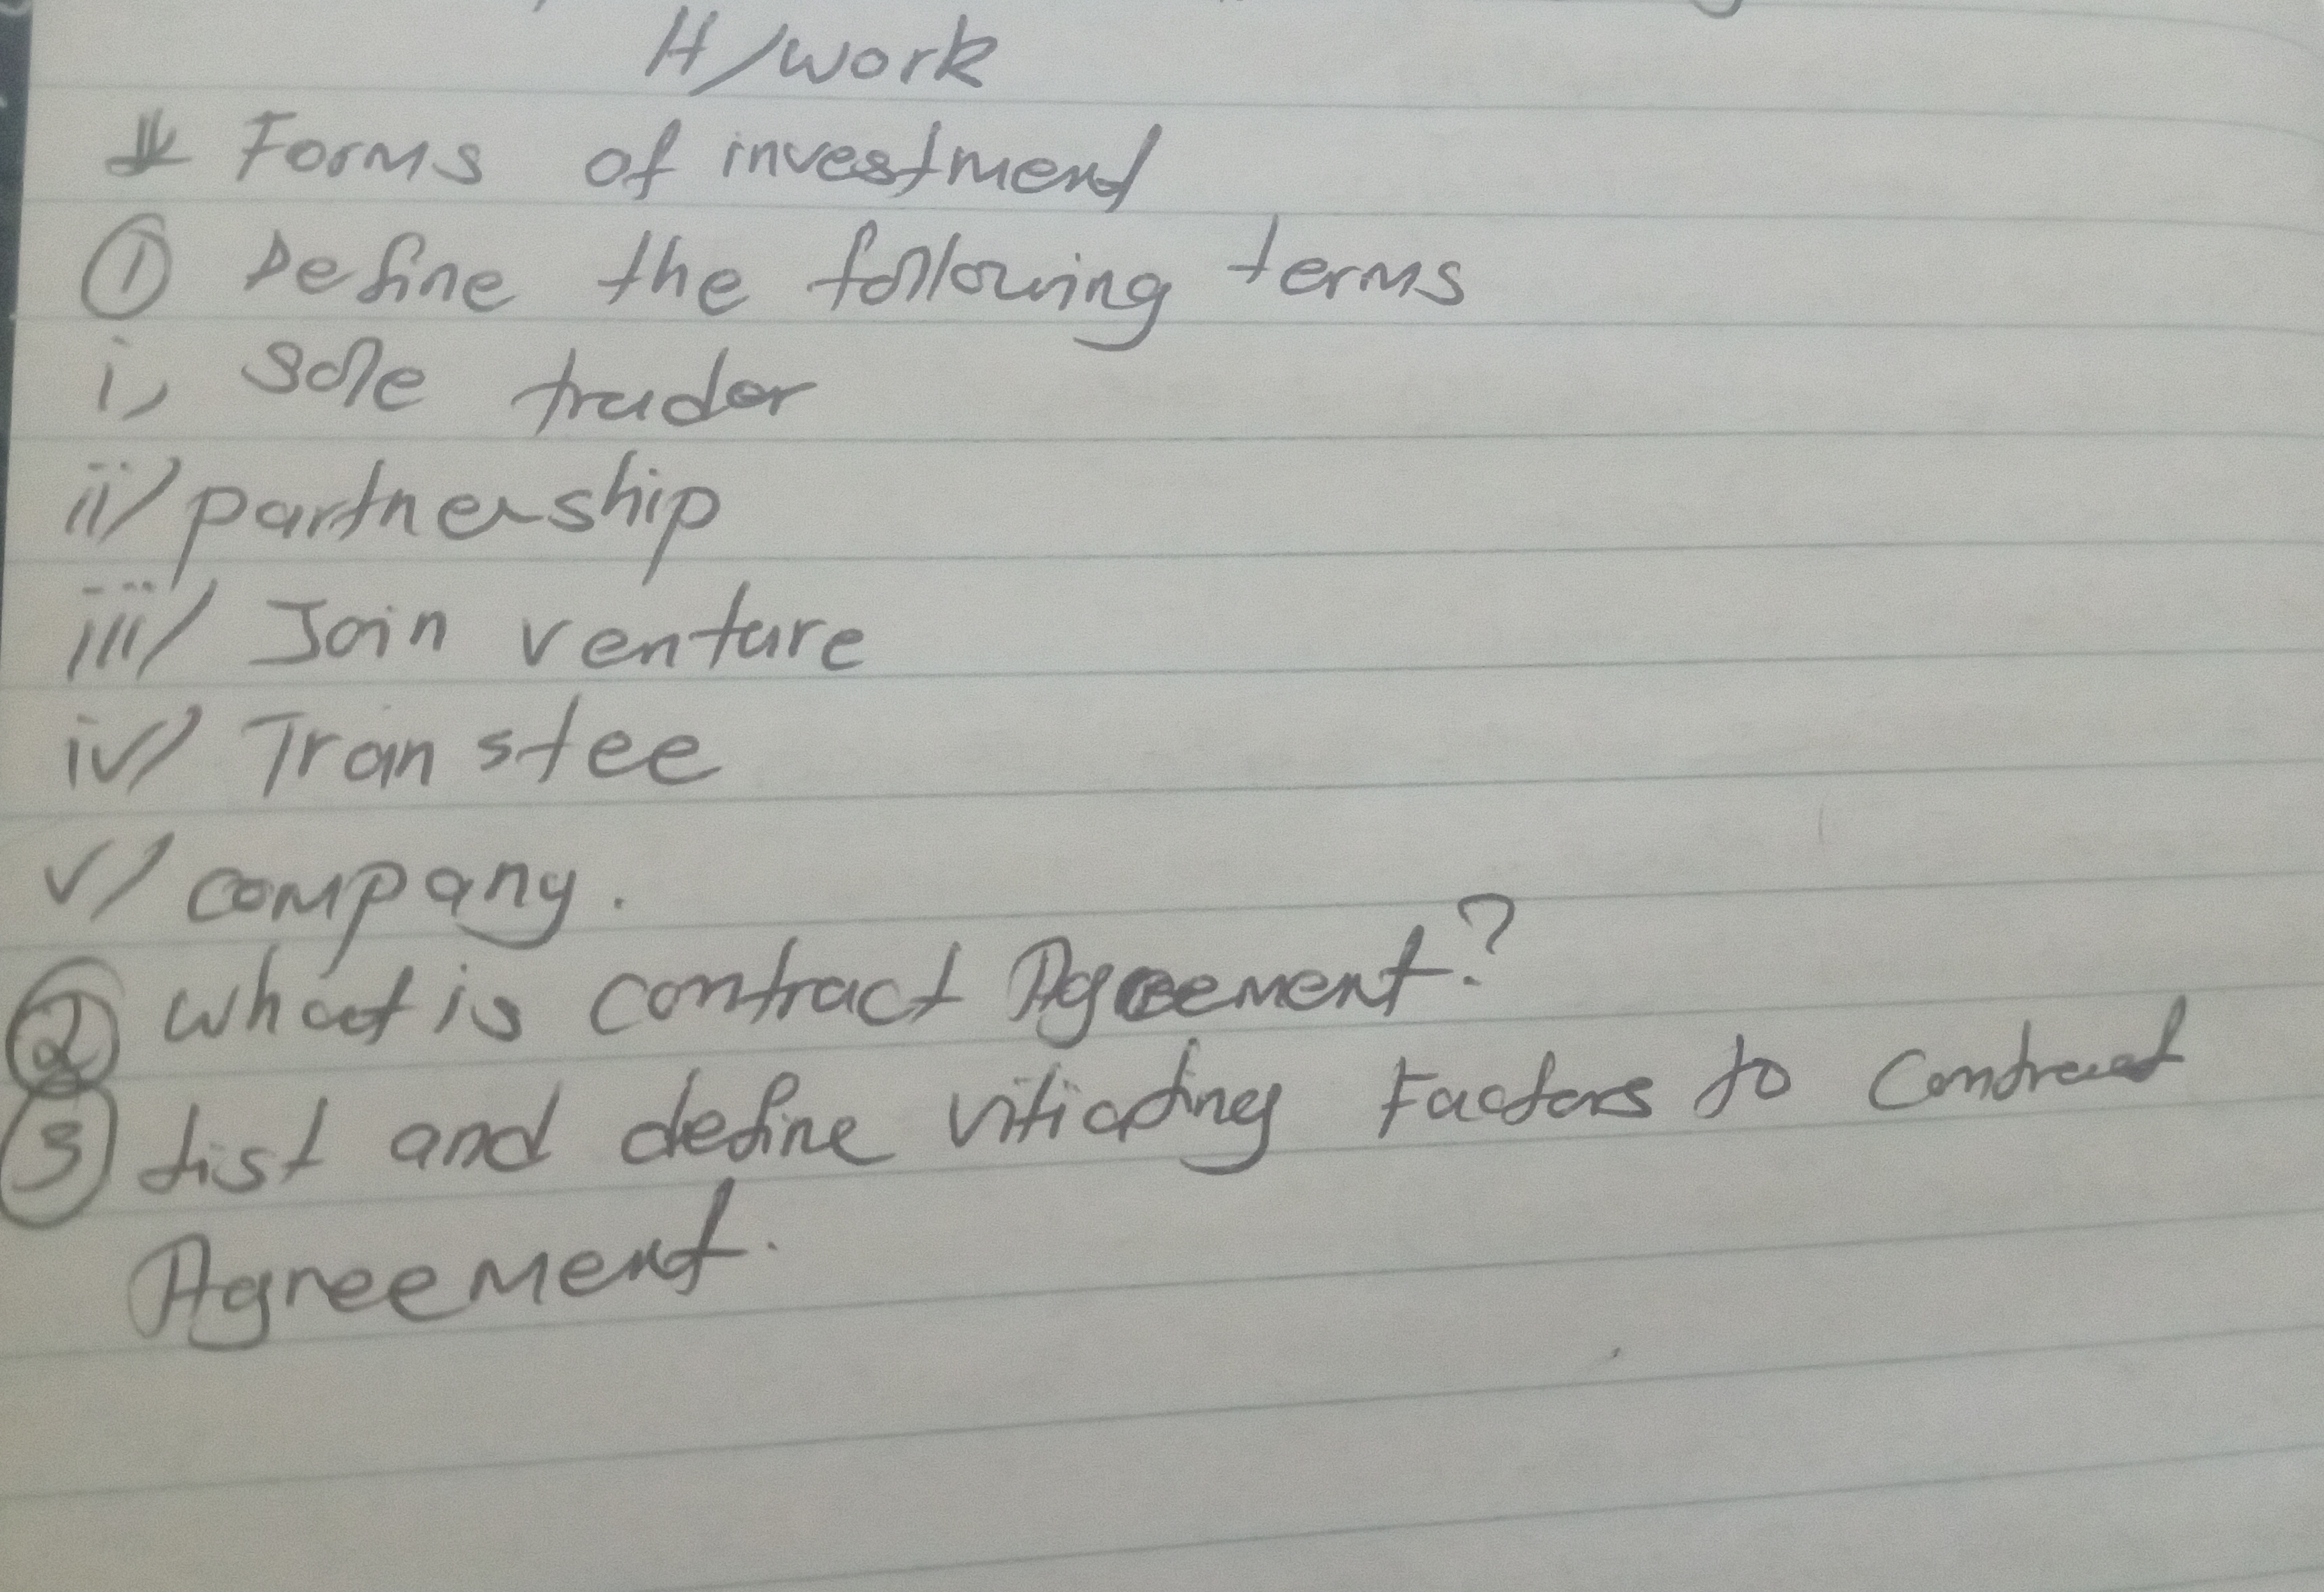 H/work
Forms of investment
① Define the following terms
i, sole trader
ii/ partnership
iii/ Join venture
iv/ Transtee
v/ company.
② what is contract Agreement?
③ List and define vitiating Factors to Contract
Agreement.